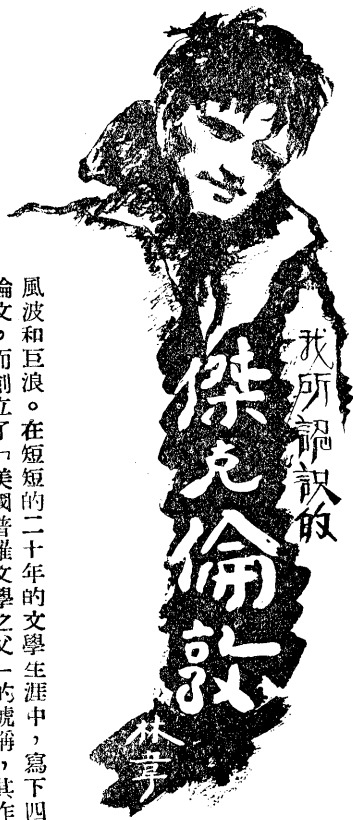 我所認識的
傑克倫敦
林葦
風波和巨浪。在短短的二十年的文學生涯中，寫下四
論文。而創立了「美國普羅文學之父」的號稱，其作